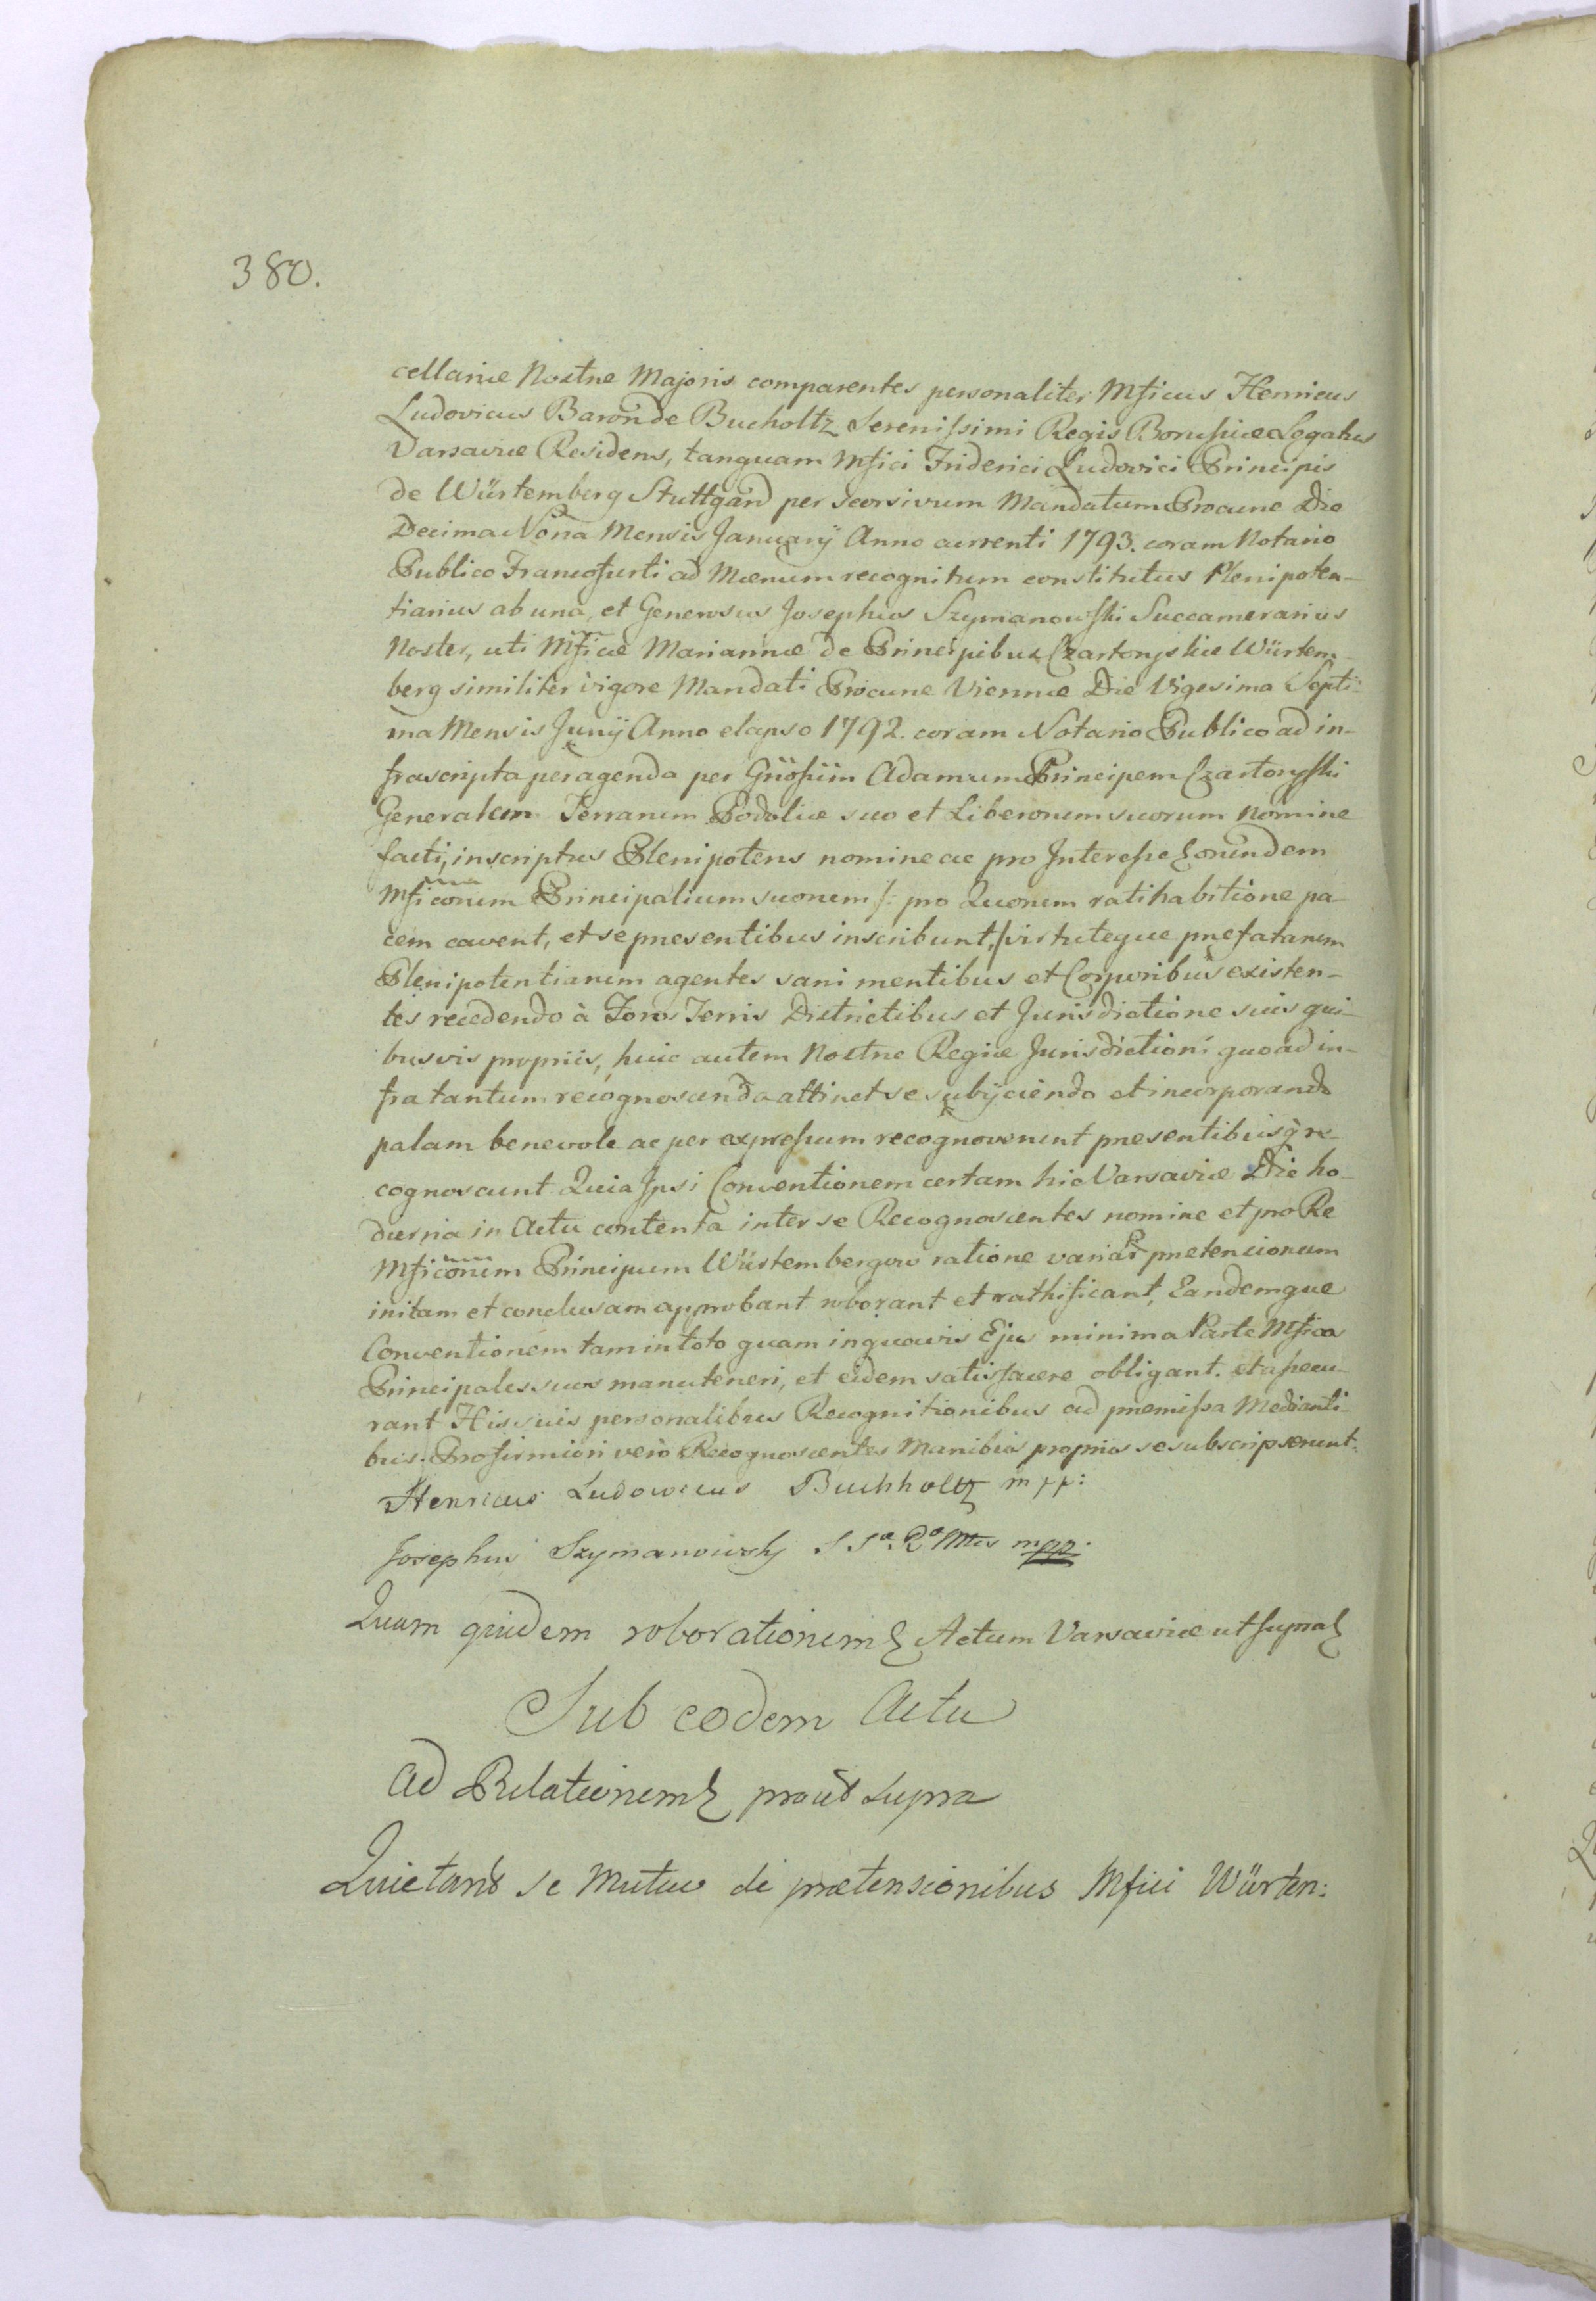 380.
cellariæ Nostræ Majoris comparentes personaliter Mficus Henricus
Ludovicus Baron de Bucholtz Serenissimi Regis Borussiæ Legatus
Varsaviæ Residens, tanquam Mfici Friderici Ludovici Principis
de Würtemberg Stuttgard per seorsivum Mandatum Procurae Die
Decima Nona Mensis January Anno currenti 1793. coram Notario
Publico Francofurti ad Mænum recognitum constitutus Plenipoten-
tiarius ab una, et Generosus Josephus Szymanowski Succamerarius
Noster, uti Mficæ Mariannæ de Principibus Czartoryskie Würtem-
berg similiter vigore Mandati Procurae Viennæ Die Vigesima Septi-
ma Mensis Junÿ Anno elapso 1792. coram Notario Publico ad in-
frascripta peragenda per Adamum Principem Czartoryski
Generalem Terrarum Podoliæ suo et Liberorum suorum nomine
facti, inscriptus Plenipotens nomine ac pro Interesse Eorundem
Mficorum Principalium suorum /: pro Quorum ratihabitione pa-
cem cavent, et se præsentibus inscribunt,/ virtuteque præfatarum
Plenipotentiarum agentes sani mentibus et Corporibus existen-
tes recedendo à Foro Terris Districtibus et Jurisdictione suis qui-
busvis propriis, huic autem Nostræ Regiæ Jurisdictioni quoad in-
fra tantum recognoscenda attinet se subÿciendo et incorporando
palam benevole ac per expressum recognoverunt præsentibusq̃ re-
cognoscunt Quia Ipsi Conventionem certam hic Varsaviæ Die ho-
dierna in Actu contenta inter se Recognoscentes nomine et pro Re
Mficorum Principum Würtembergow ratione variar prætencionum
initam et conclusam approbant roborant et rathificant, Eandemque
Conventionem tam in toto quam in quavis Ejus minima Parte Mficos
Principales suos manuteneri, et eidem satisfacere obligant. et assecu-
rant His suis personalibus Recognitionibus ad præmissa Medianti-
bus. Pro firmiori verò Recognoscentes Manibus propriis se subscripserunt.
Henricus Ludowicus Buchholtz mpp:
Josephus Szymanowsky S Sæ Ræ Mtis mpp.
Quam quidem roborationem Actum Varsaviæ ut supra
Sub eodem Actu
Ad Relationem prout supra
Quietant se Mutuo de prætensionibus Mfici Würten: